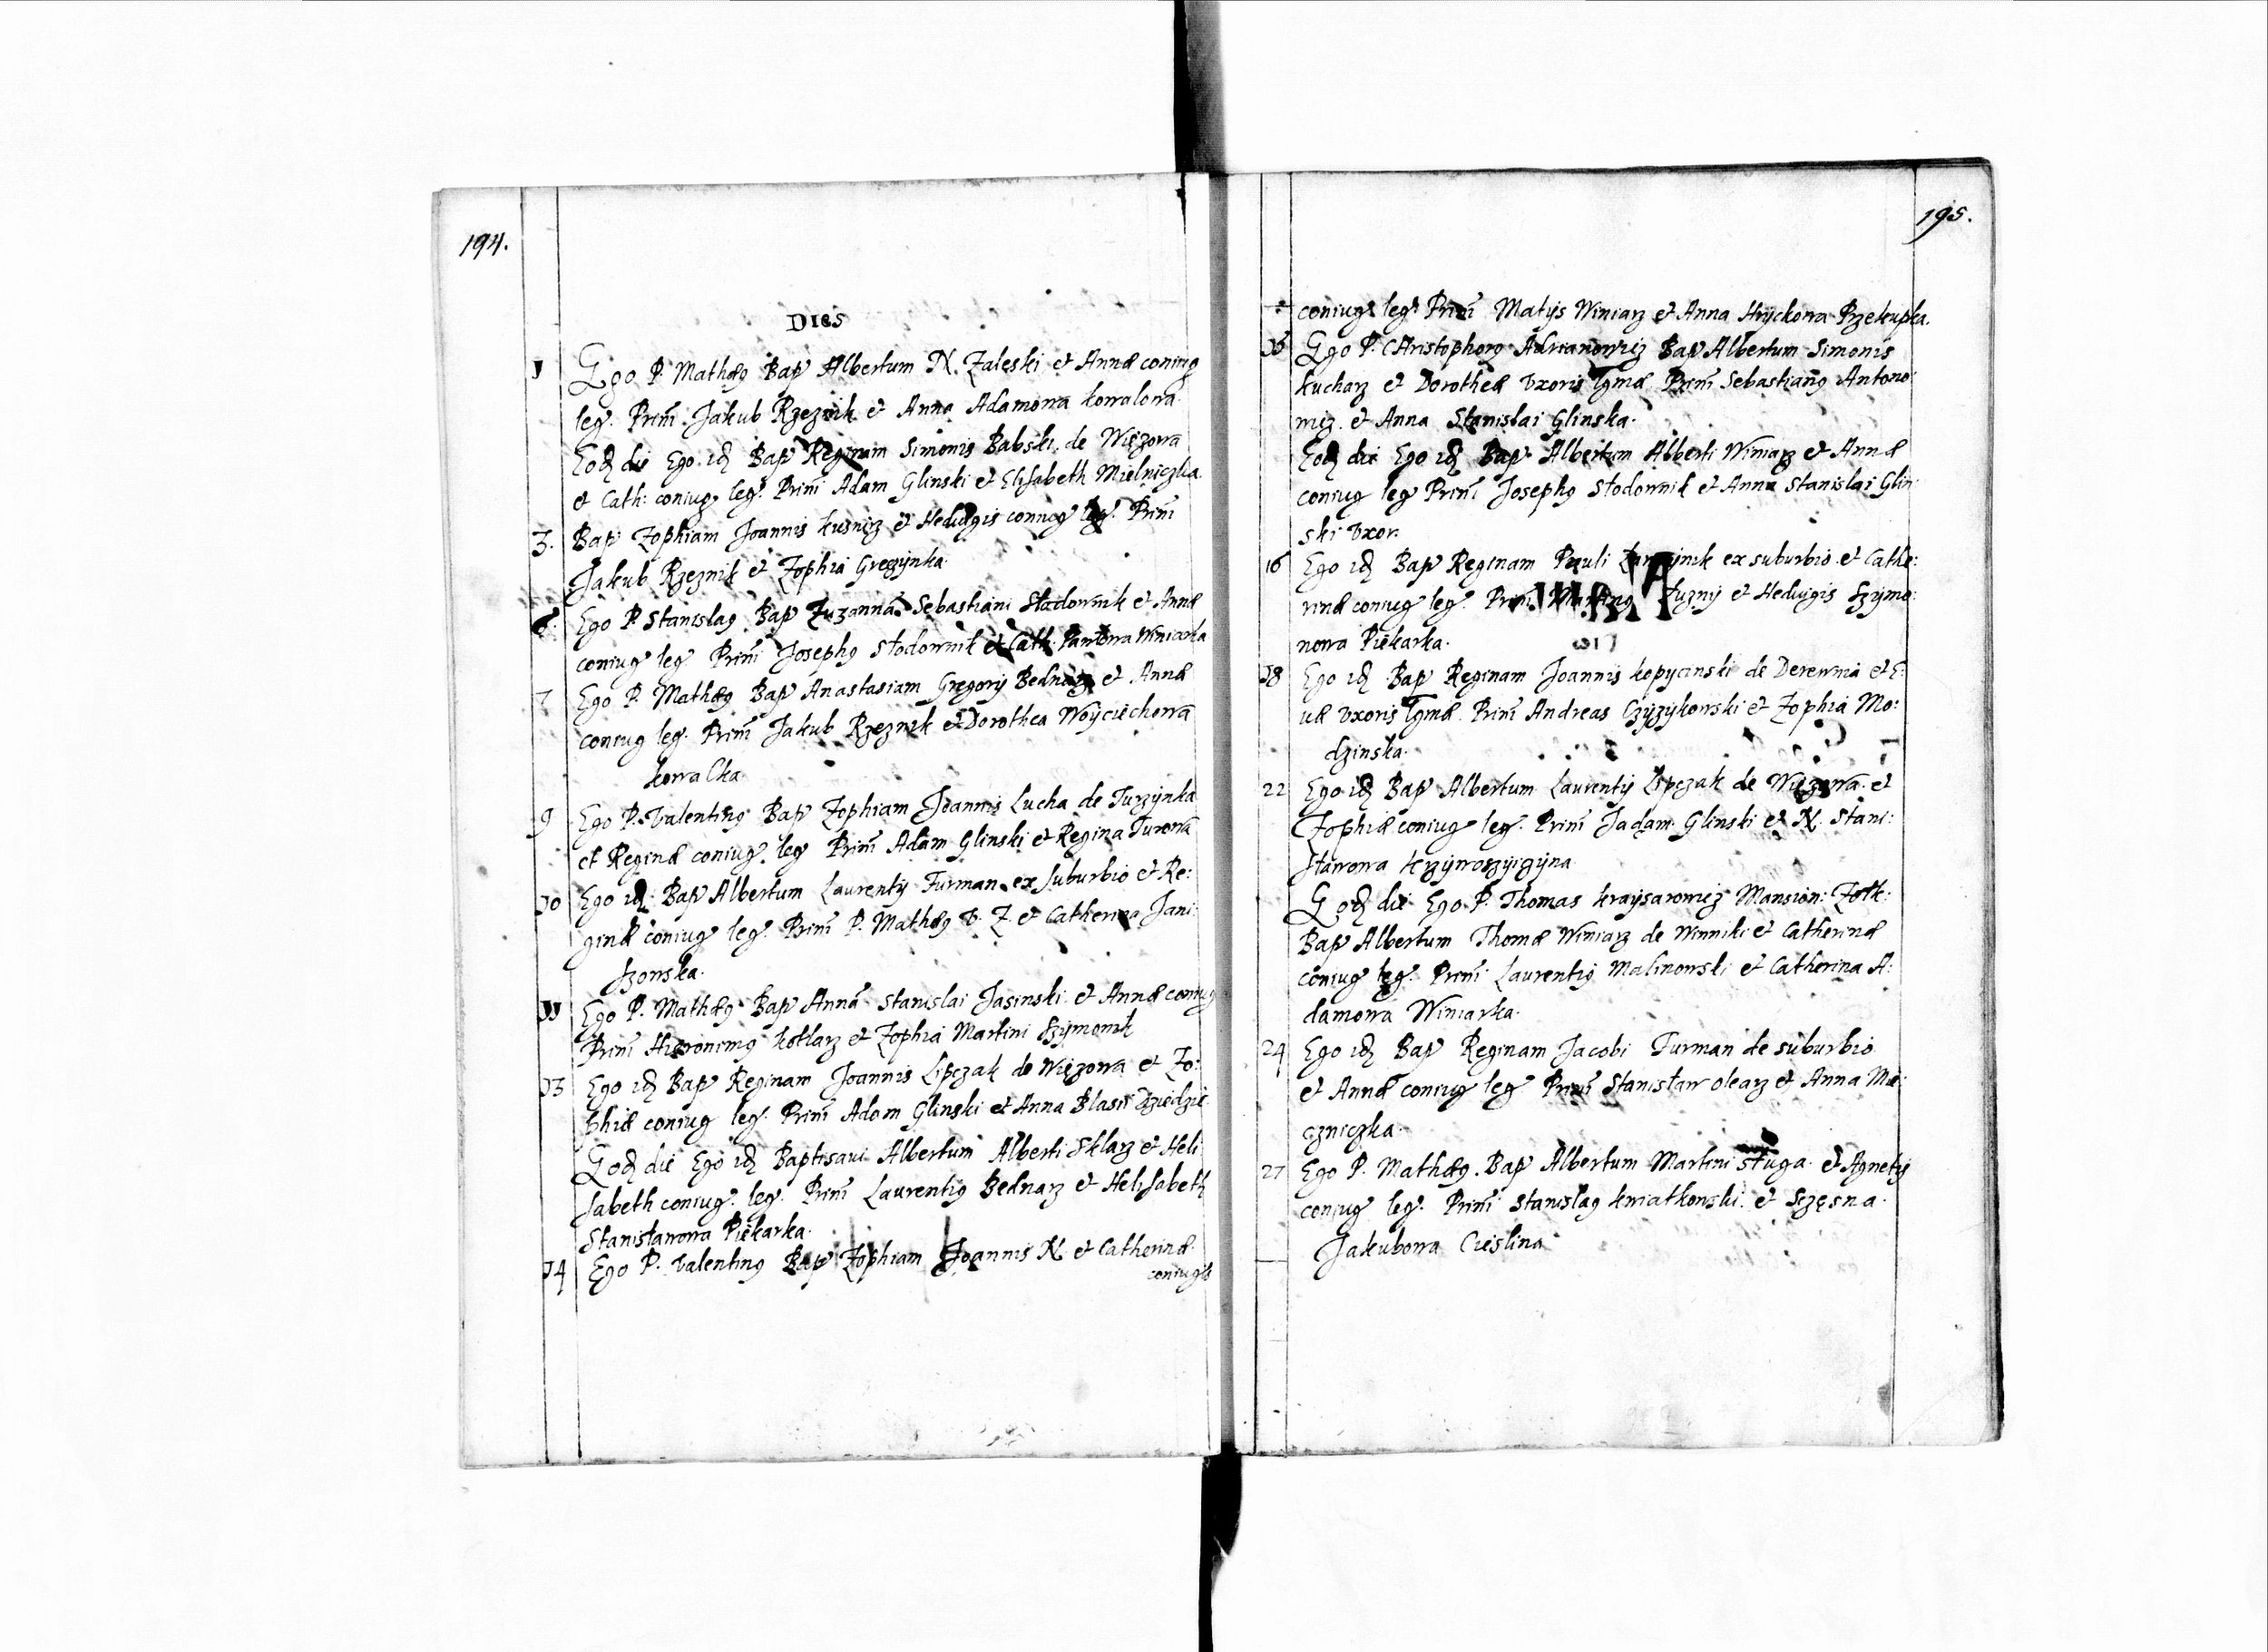 194.
DIES
1 Ego P. Mathæ9 Bap Albertum N. Zaleski et Annæ coniug
leg. Prim Jakub Rzeznik et Anna Adamowa kowalowa.
Eod die Ego id Bap Reginam Simonis Babski de Więzowa
et Cath: coniug leg. Prim Adam Glinski et Elisabeth Mielniczka
3. Bap Zophiam Joannis kusnirz et Hedwigis coniug leg. Prim
Jakub Rzeznik et Zophia
Ego P. Stanislag Bap Zuzannā Sebastiani Słodownik et Annæ
coniug leg. Prim Joseph9 Słodownik et Cath. Winiarka
7 Ego P. Mathæ9 Bap Anastasiam Gregorij Bednarz et Annæ
coniug leg. Prim Jakub Rzeznik et Dorothea Woyciechowa
kowalka
9 Ego P. Valentin9 Bap Zophiam Joannis Lucha de Turzynka
et Reginæ coniug leg Prim Adam Glinski et Regina Turowa
10 Ego id Bap Albertum Laurentij Furman ex suburbio et Re:
ginæ coniug leg. Prim P. Mathæ9 V. Z. et Catherina Jani:
szowska.
11 Ego P. Mathæ9 Bap Annā Stanislai Jasinski et Annæ coniug
Prim Hieronim9 kotlarz et Zophia Martini Szymonik
13 Ego id Bap Reginam Joannis Lipczak de Więzowa et Zo:
phiæ coniug leg. Prim Adam Glinski et Anna Blasii
Eod die Ego id Baptisaui Albertum Alberti Sklarz et Heli
sabeth coniug. leg. Prim Laurenti9 Bednarz et Helisabeth
Stanisławowa Piekarka.
14 Ego P. Valentin9 Bap Zophiam Joannis N. et Catherinæ
coniugis
195.
coniug leg. Prim Matijs Winiarz et Anna Hryckowa Przekupka.
Ego P. Christophor9 Adrianowicz Bap Albertum Simonis
Kucharz et Dorotheæ Vxoris lgmæ Prim Sebastian9 Antono
wicz et Anna Stanislai Glinska.
Eod die Ego id Bap Albertum Alberti Winiarz et Annæ
coniug leg Prim Joseph9 Słodownik et Anna Stanislai Glin
ski Vxor.
16 Ego id Bap Reginam Pauli ex suburbio et Cathe:
rinæ coniug leg. Prim Martin9 Luzny et Hedwigis Szymo:
nowa Piekarka.
18 Ego id Bap Reginam Joannis kopycinski de Derewnia et E:
uæ Vxoris lgmæ. Prim Andreas Czyzykowski et Zophia Mo:
dzinska.
22 Ego id Bap Albertum Laurentij Lipczak de Więzowa et
Zophiæ coniug leg. Prim Jadam Glinski et N. Stani:
sławowa
Eod die Ego P. Thomas kraysarowicz Mansion: Zołk:
Bap Albertum Thomæ Winiarz de Winniki et Catherinæ
coniug leg. Prim Laurenti9 Malinowski et Catherina A:
damowa Winiarka.
24 Ego id Bap Reginam Jacobi Furman de suburbio
et Annæ coniug leg Prim Stanisław olearz et Anna Mie:
czniczka.
27 Ego P. Mathæ9 Bap Albertum Martini Sługa et Agnetis
coniug leg. Prim Stanislag kwiatkowski et Sczęsna
Jakubowa Cieslina